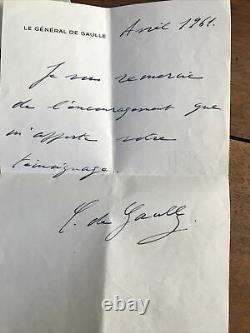 LE GÉNÉRAL DE GAULLE
Avril 1961.
Je vous remercie
de l'encouragement que
m'apporte votre
témoignage.
C. de Gaulle.